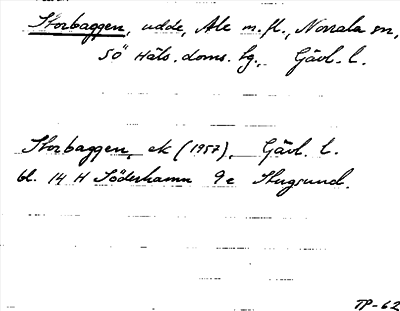 Storbaggen, udde, Ale m.fl., Norrala sn,
SÖ Häls. doms. sg., Gävl. l.
Storbaggen, ek (1957), Gävl. l.
bl. 14 H Söderhamn 9e Stugsund.
TP-62